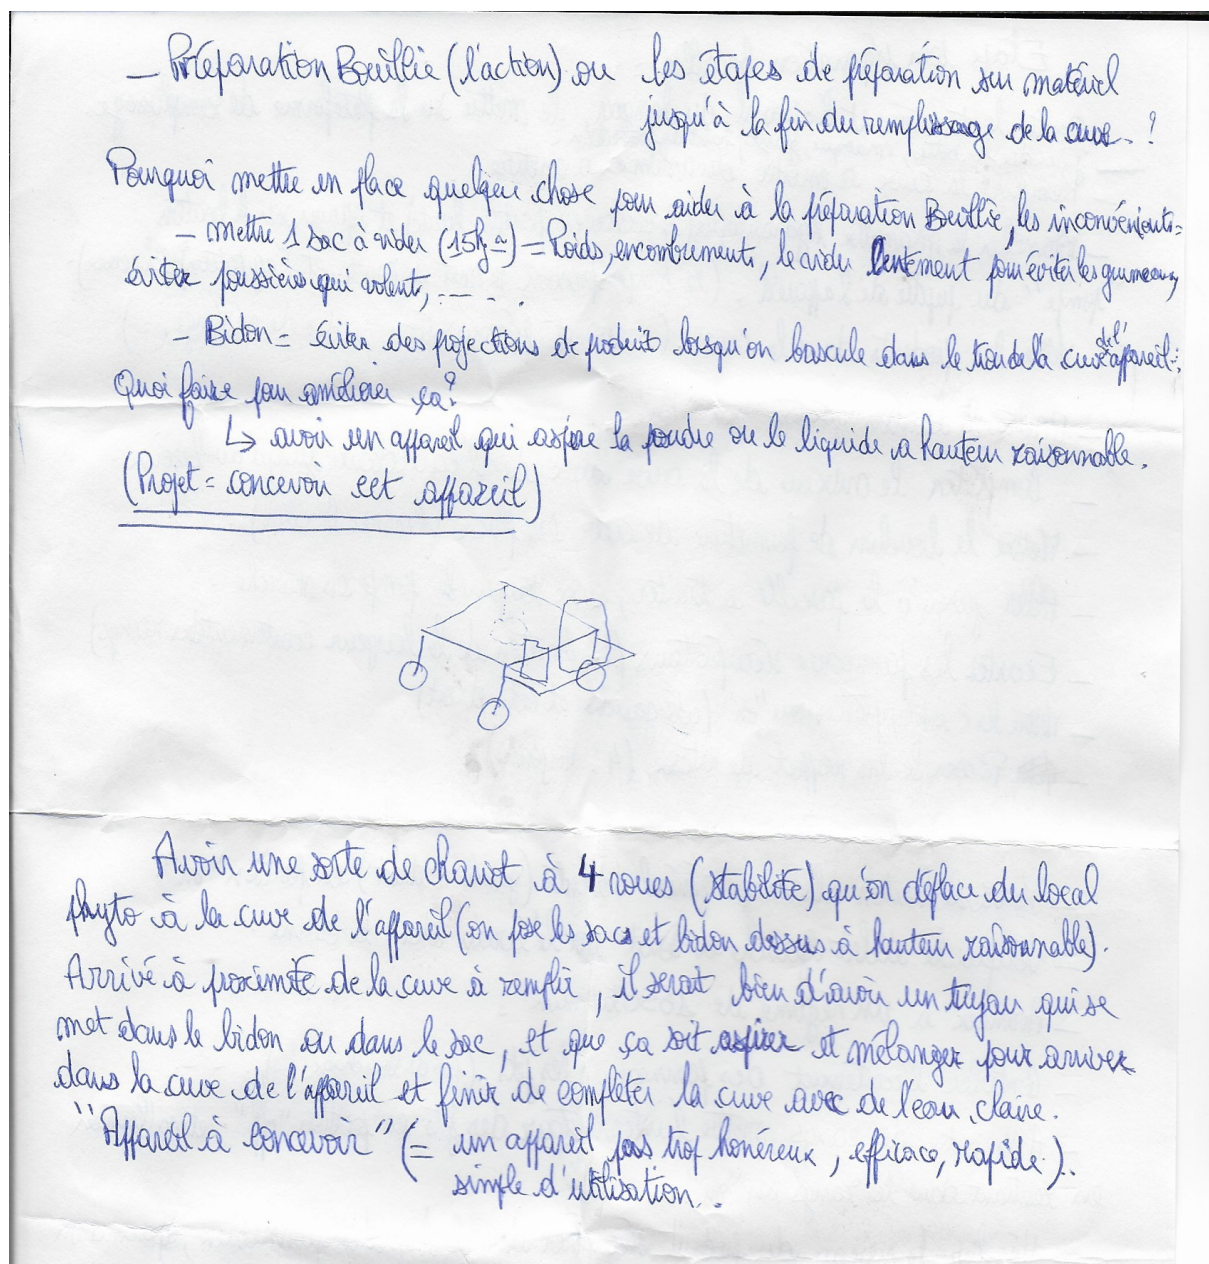 – Préparation Bouillie (l'action) ou les étapes de préparation sur matériel
jusqu'à la fin du remplissage de la cuve. !
Pourquoi mettre en place quelque chose pour aider à la préparation Bouillie, les inconvénients =
– mettre 1 sac à vider (15kg ≃) = Poids, encombrements, le vider Lentement pour éviter les grumeaux,
éviter poussières qui volent, ......
– Bidon = éviter des projections de produits lorsqu'on bascule dans le trou de la cuve de l'appareil.
Quoi faire pour améliorer ça?
↳ avoir un appareil qui aspire la poudre ou le liquide a hauteur raisonnable.
(Projet = concevoir cet appareil)
Avoir une sorte de chariot à 4 roues (stabilité) qu'on déplace du local
phyto à la cuve de l'appareil (on pose les sacs et bidon dessus à hauteur raisonnable).
Arrivé à proximité de la cuve à remplir, il serait bien d'avoir un tuyau qui se
met dans le bidon ou dans le sac, et que ça soit aspirer et mélanger pour arriver
dans la cuve de l'appareil et finir de compléter la cuve avec de l'eau claire.
"Appareil à concevoir" (= un appareil pas trop honéreux, efficace, rapide.).
simple d'utilisation..